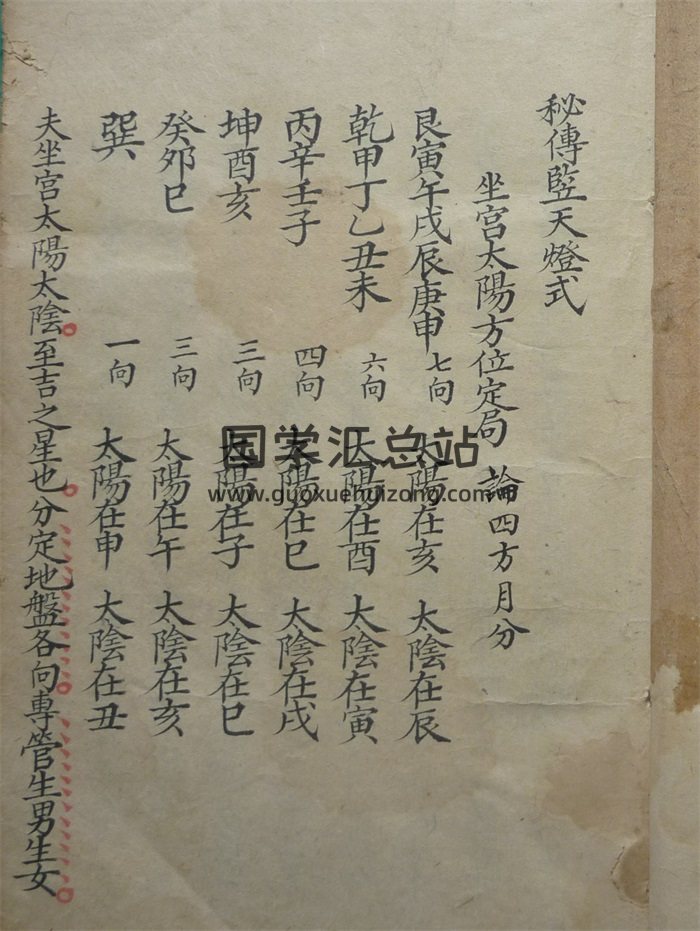 秘傳竪天燈式
坐宮太陽方位定局 論四方月分
艮寅午戌辰庚申 七向 太陽在亥 太陰在辰
乾甲丁乙丑未 六向 太陽在酉 太陰在寅
丙辛壬子 四向 太陽在巳 太陰在戌
坤酉亥 三向 太陽在子 太陰在巳
癸夘巳 三向 太陽在午 太陰在亥
巽 一向 太陽在申 太陰在丑
夫坐宮太陽太陰至吉之星也分定地盤各向專管生男生女
国学汇总站
www.guoxuehuizong.com